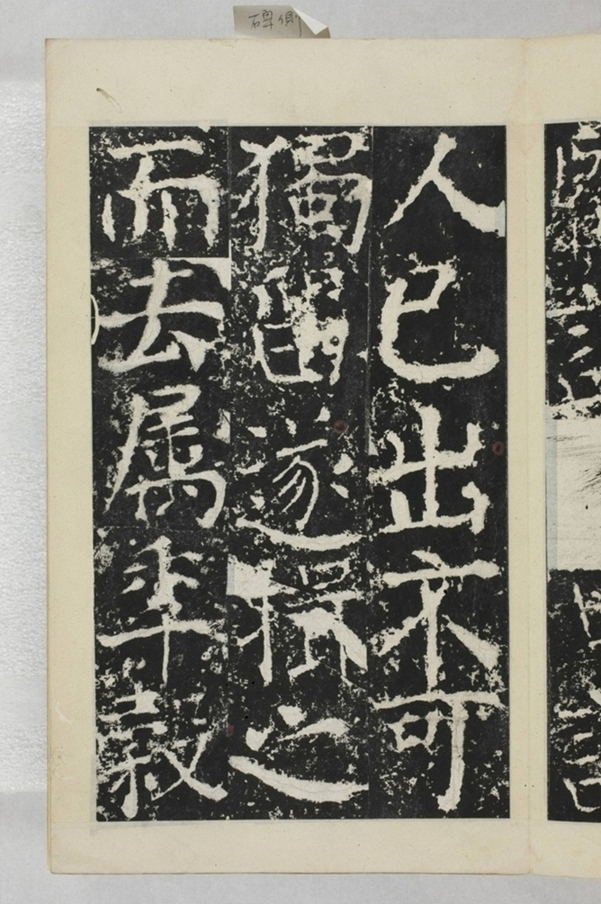 碑側
人已出不可
獨留遂揖之
而去属年穀